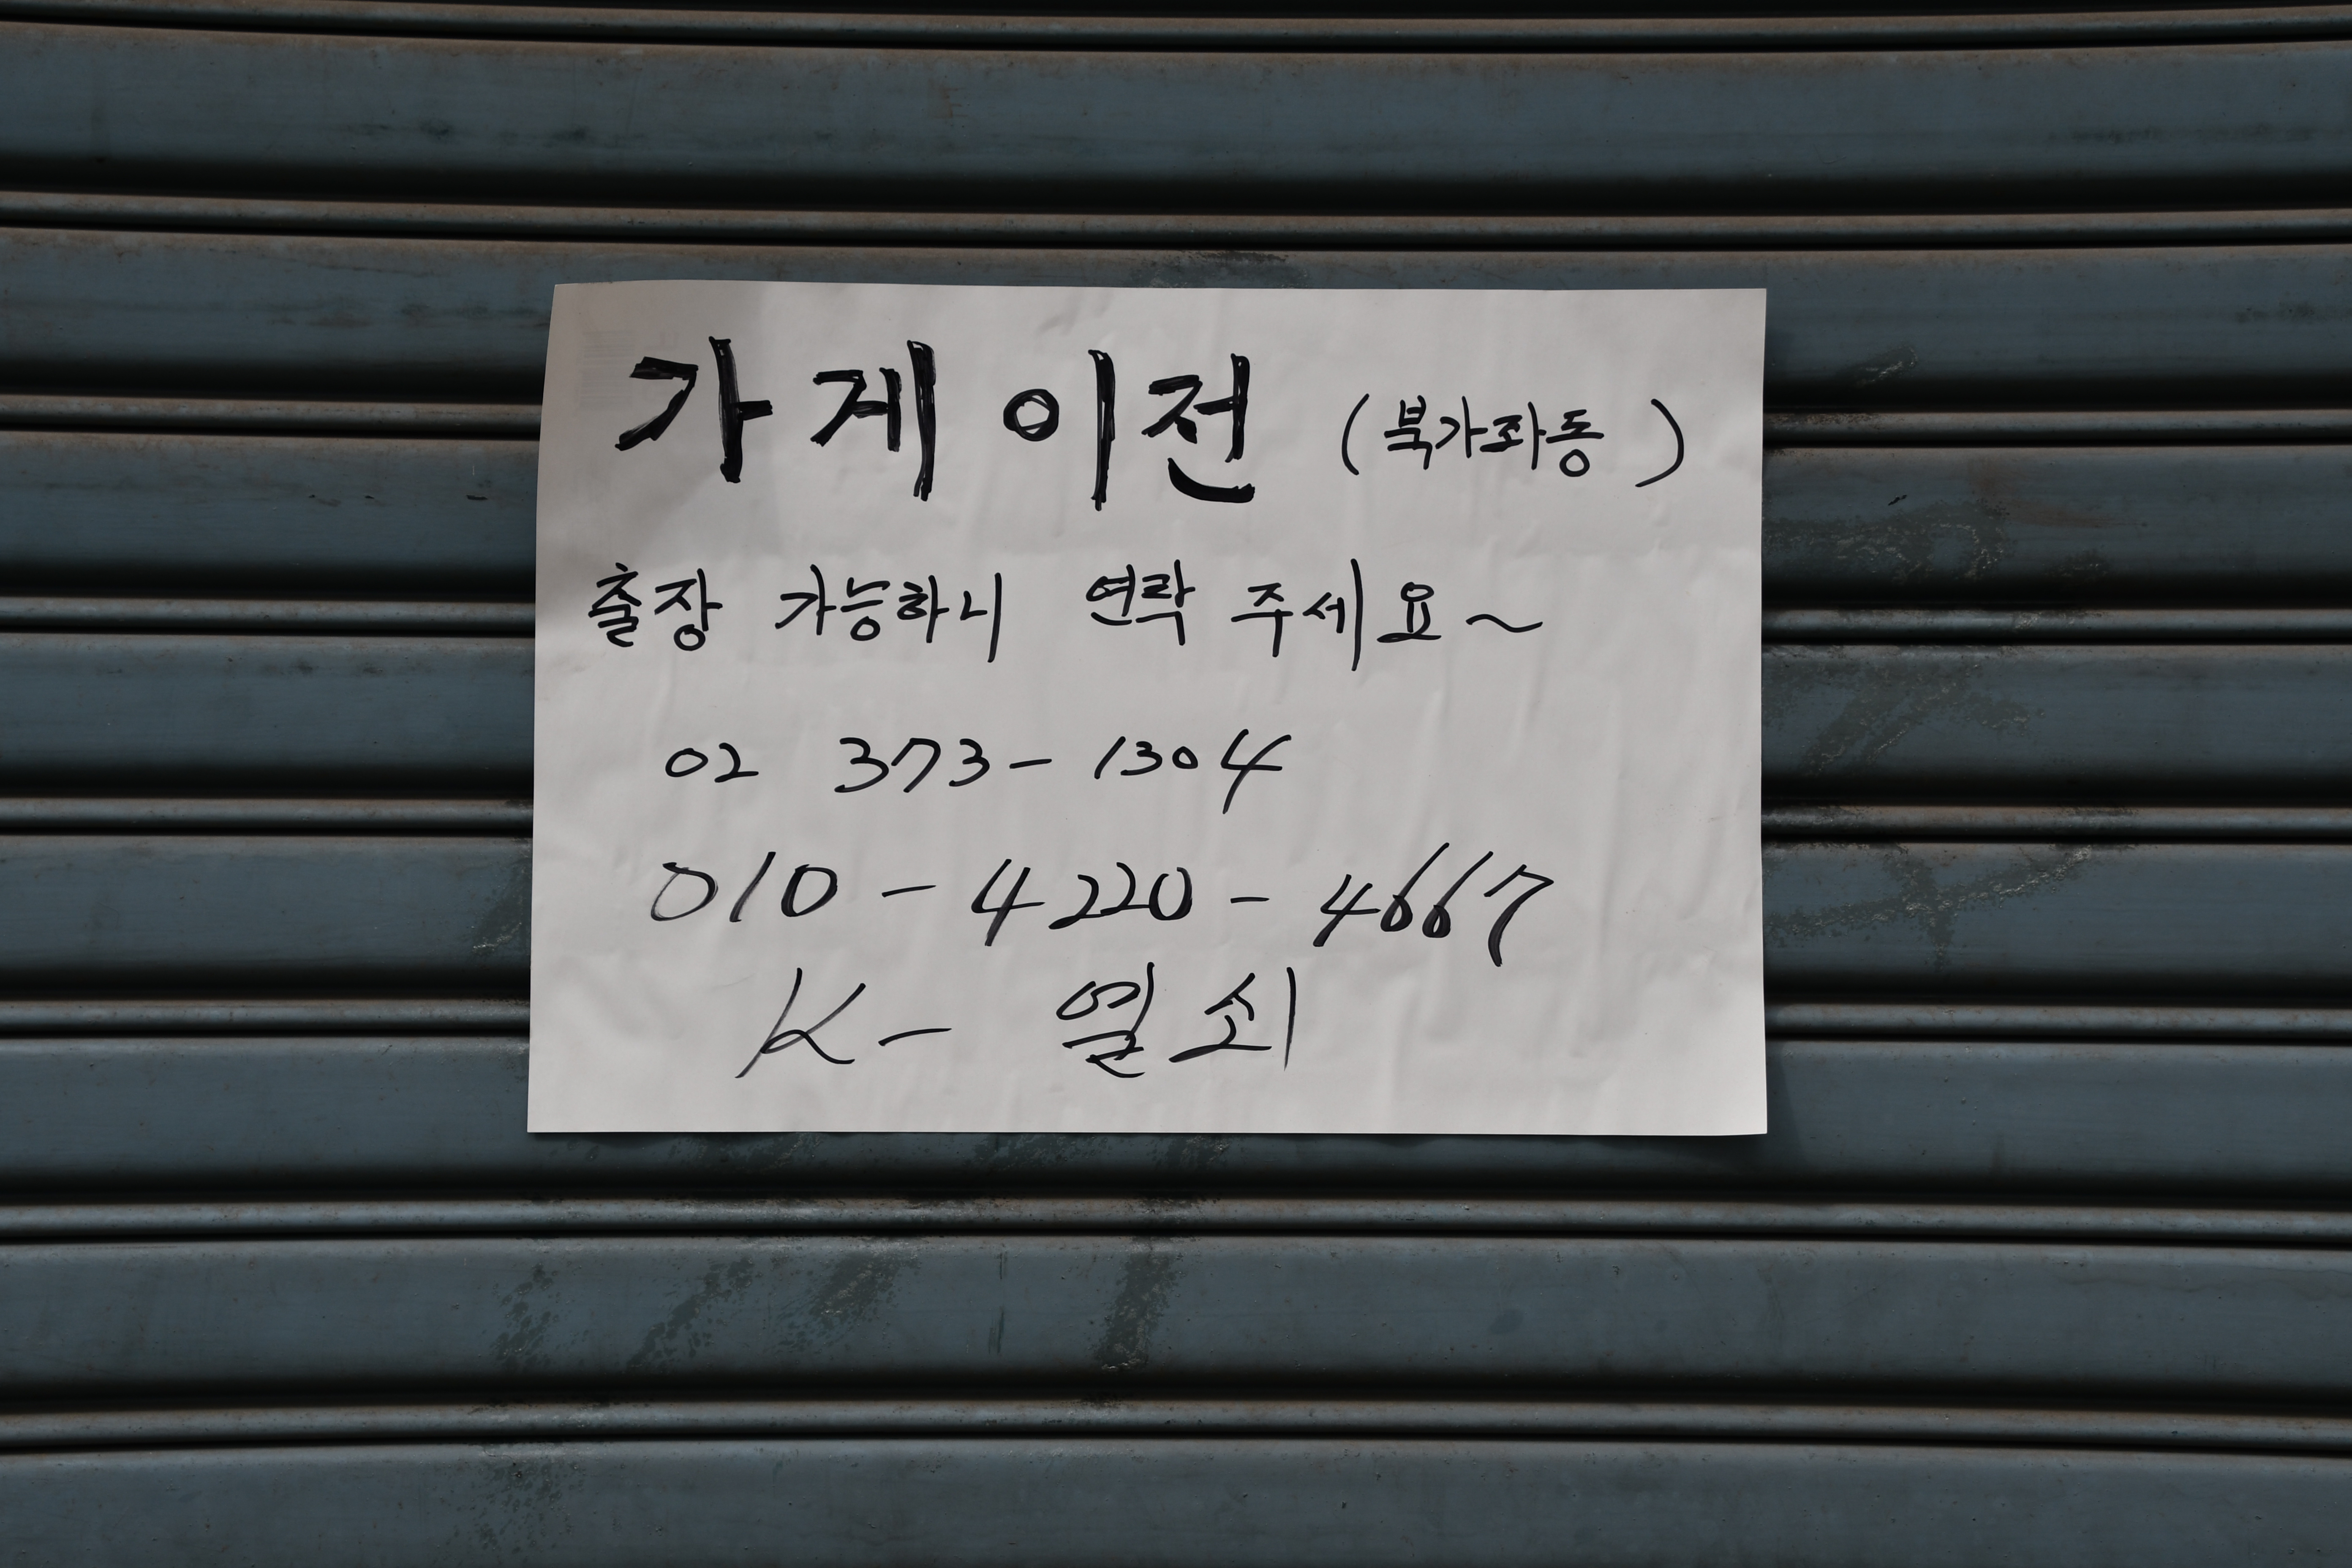 가게이전 (북가좌동)
출장 가능하니 연락 주세요~
02 373-1304
010-4220-4667
K- 열쇠